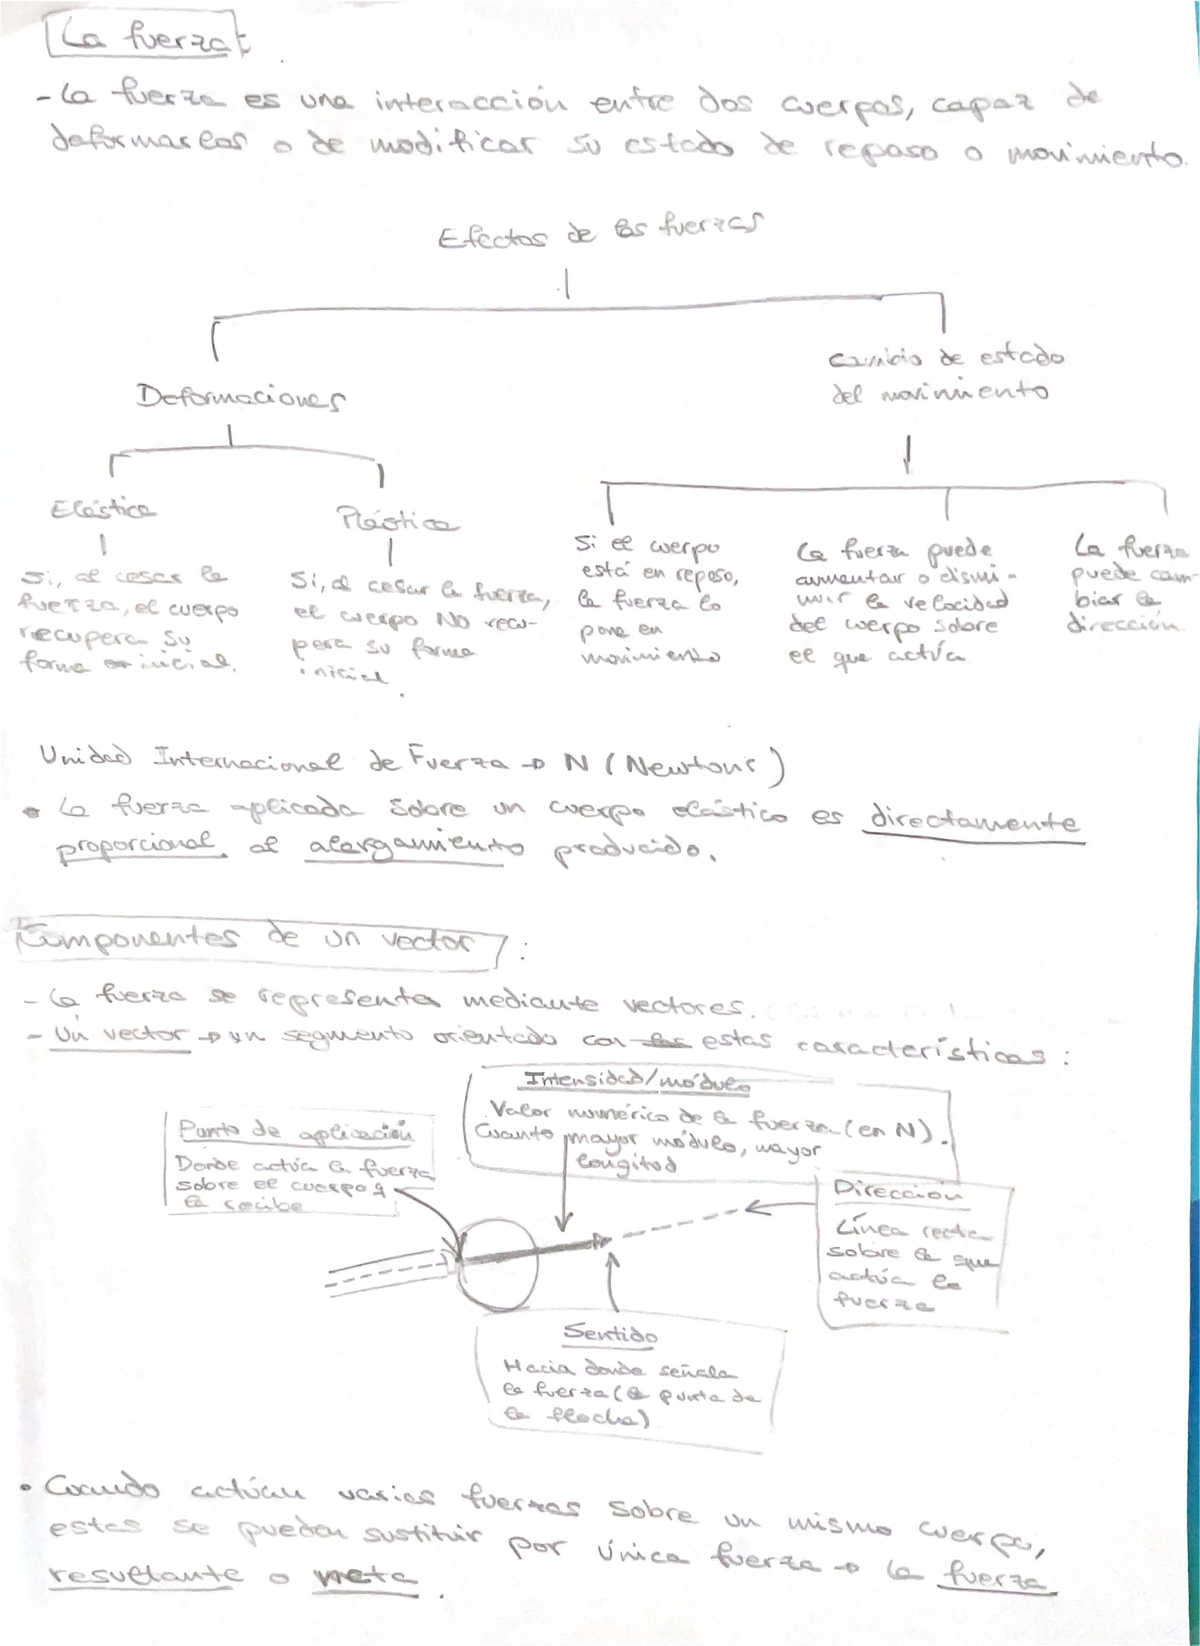 La fuerza:
- La fuerza es una interacción entre dos cuerpos, capaz de
deformarlos o de modificar su estado de reposo o movimiento.
Efectos de las fuerzas
Deformaciones
Cambio de estado
del movimiento
Elástica
Plástica
Si, al cesar la
fuerza, el cuerpo
recupera su
forma inicial.
Si, al cesar la fuerza,
el cuerpo NO recu-
pera su forma
inicial.
Si el cuerpo
está en reposo,
la fuerza lo
pone en
movimiento
La fuerza puede
aumentar o dismi-
nuir la velocidad
del cuerpo sobre
el que actúa
La fuerza
puede cam-
biar la
dirección
Unidad Internacional de Fuerza → N (Newtons)
• La fuerza aplicada sobre un cuerpo elástico es directamente
proporcional al alargamiento producido.
Componentes de un vector:
- La fuerza se representa mediante vectores.
- Un vector → un segmento orientado con las estas características:
Intensidad/módulo
Valor numérico de la fuerza (en N).
Cuanto mayor módulo, mayor
longitud
Punto de aplicación
Donde actúa la fuerza
sobre el cuerpo q
la recibe
Dirección
Línea recta
sobre la que
actúa la
fuerza
Sentido
Hacia donde señala
la fuerza (la punta de
la flecha)
• Cuando actúan varias fuerzas sobre un mismo cuerpo,
estas se pueden sustituir por única fuerza → la fuerza
resultante o neta.